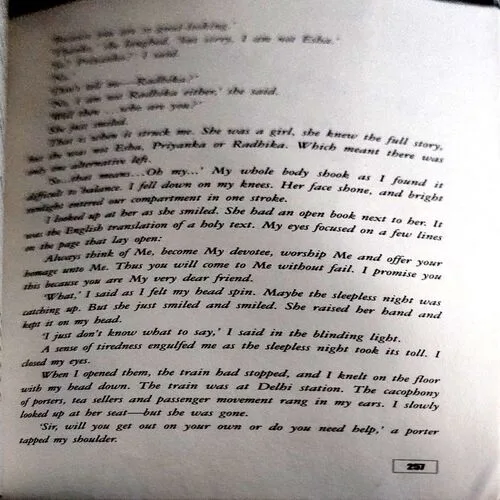 'Because you are so good-looking.'
'Thanks,' she laughed, 'but sorry, I am not Esha.'
'So, Priyanka?' I said.
'No.'
'Don't tell me—Radhika?'
'No, I am not Radhika either,' she said.
'Well then... who are you?'
She just smiled.
That's when it struck me. She was a girl, she knew the full story,
but she was not Esha, Priyanka or Radhika. Which meant there was
only one alternative left.
'So... that means...Oh my...' My whole body shook as I found it
difficult to balance. I fell down on my knees. Her face shone, and bright
sunlight entered our compartment in one stroke.
I looked up at her as she smiled. She had an open book next to her. It
was the English translation of a holy text. My eyes focused on a few lines
on the page that lay open:
Always think of Me, become My devotee, worship Me and offer your
homage unto Me. Thus you will come to Me without fail. I promise you
this because you are My very dear friend.
'What,' I said as I felt my head spin. Maybe the sleepless night was
catching up. But she just smiled and smiled. She raised her hand and
kept it on my head.
'I just don't know what to say,' I said in the blinding light.
A sense of tiredness engulfed me as the sleepless night took its toll. I
closed my eyes.
When I opened them, the train had stopped, and I knelt on the floor
with my head down. The train was at Delhi station. The cacophony
of porters, tea sellers and passenger movement rang in my ears. I slowly
looked up at her seat—but she was gone.
'Sir, will you get out on your own or do you need help,' a porter
tapped my shoulder.
257